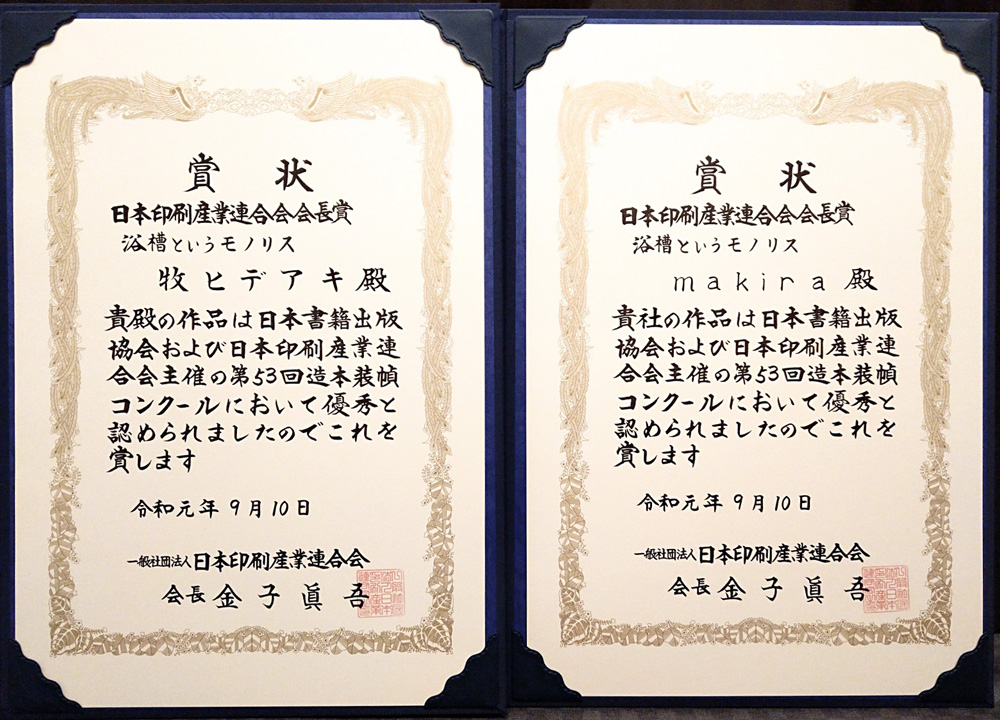 賞状
日本印刷産業連合会会長賞
浴槽というモノリス
牧ヒデアキ殿
貴殿の作品は日本書籍出版
協会および日本印刷産業連
合会主催の第53回造本装幀
コンクールにおいて優秀と
認められましたのでこれを
賞します
令和元年9月10日
一般社団法人日本印刷産業連合会
会長金子眞吾
賞状
日本印刷産業連合会会長賞
浴槽というモノリス
makira殿
貴社の作品は日本書籍出版
協会および日本印刷産業連
合会主催の第53回造本装幀
コンクールにおいて優秀と
認められましたのでこれを
賞します
令和元年9月10日
一般社団法人日本印刷産業連合会
会長金子眞吾